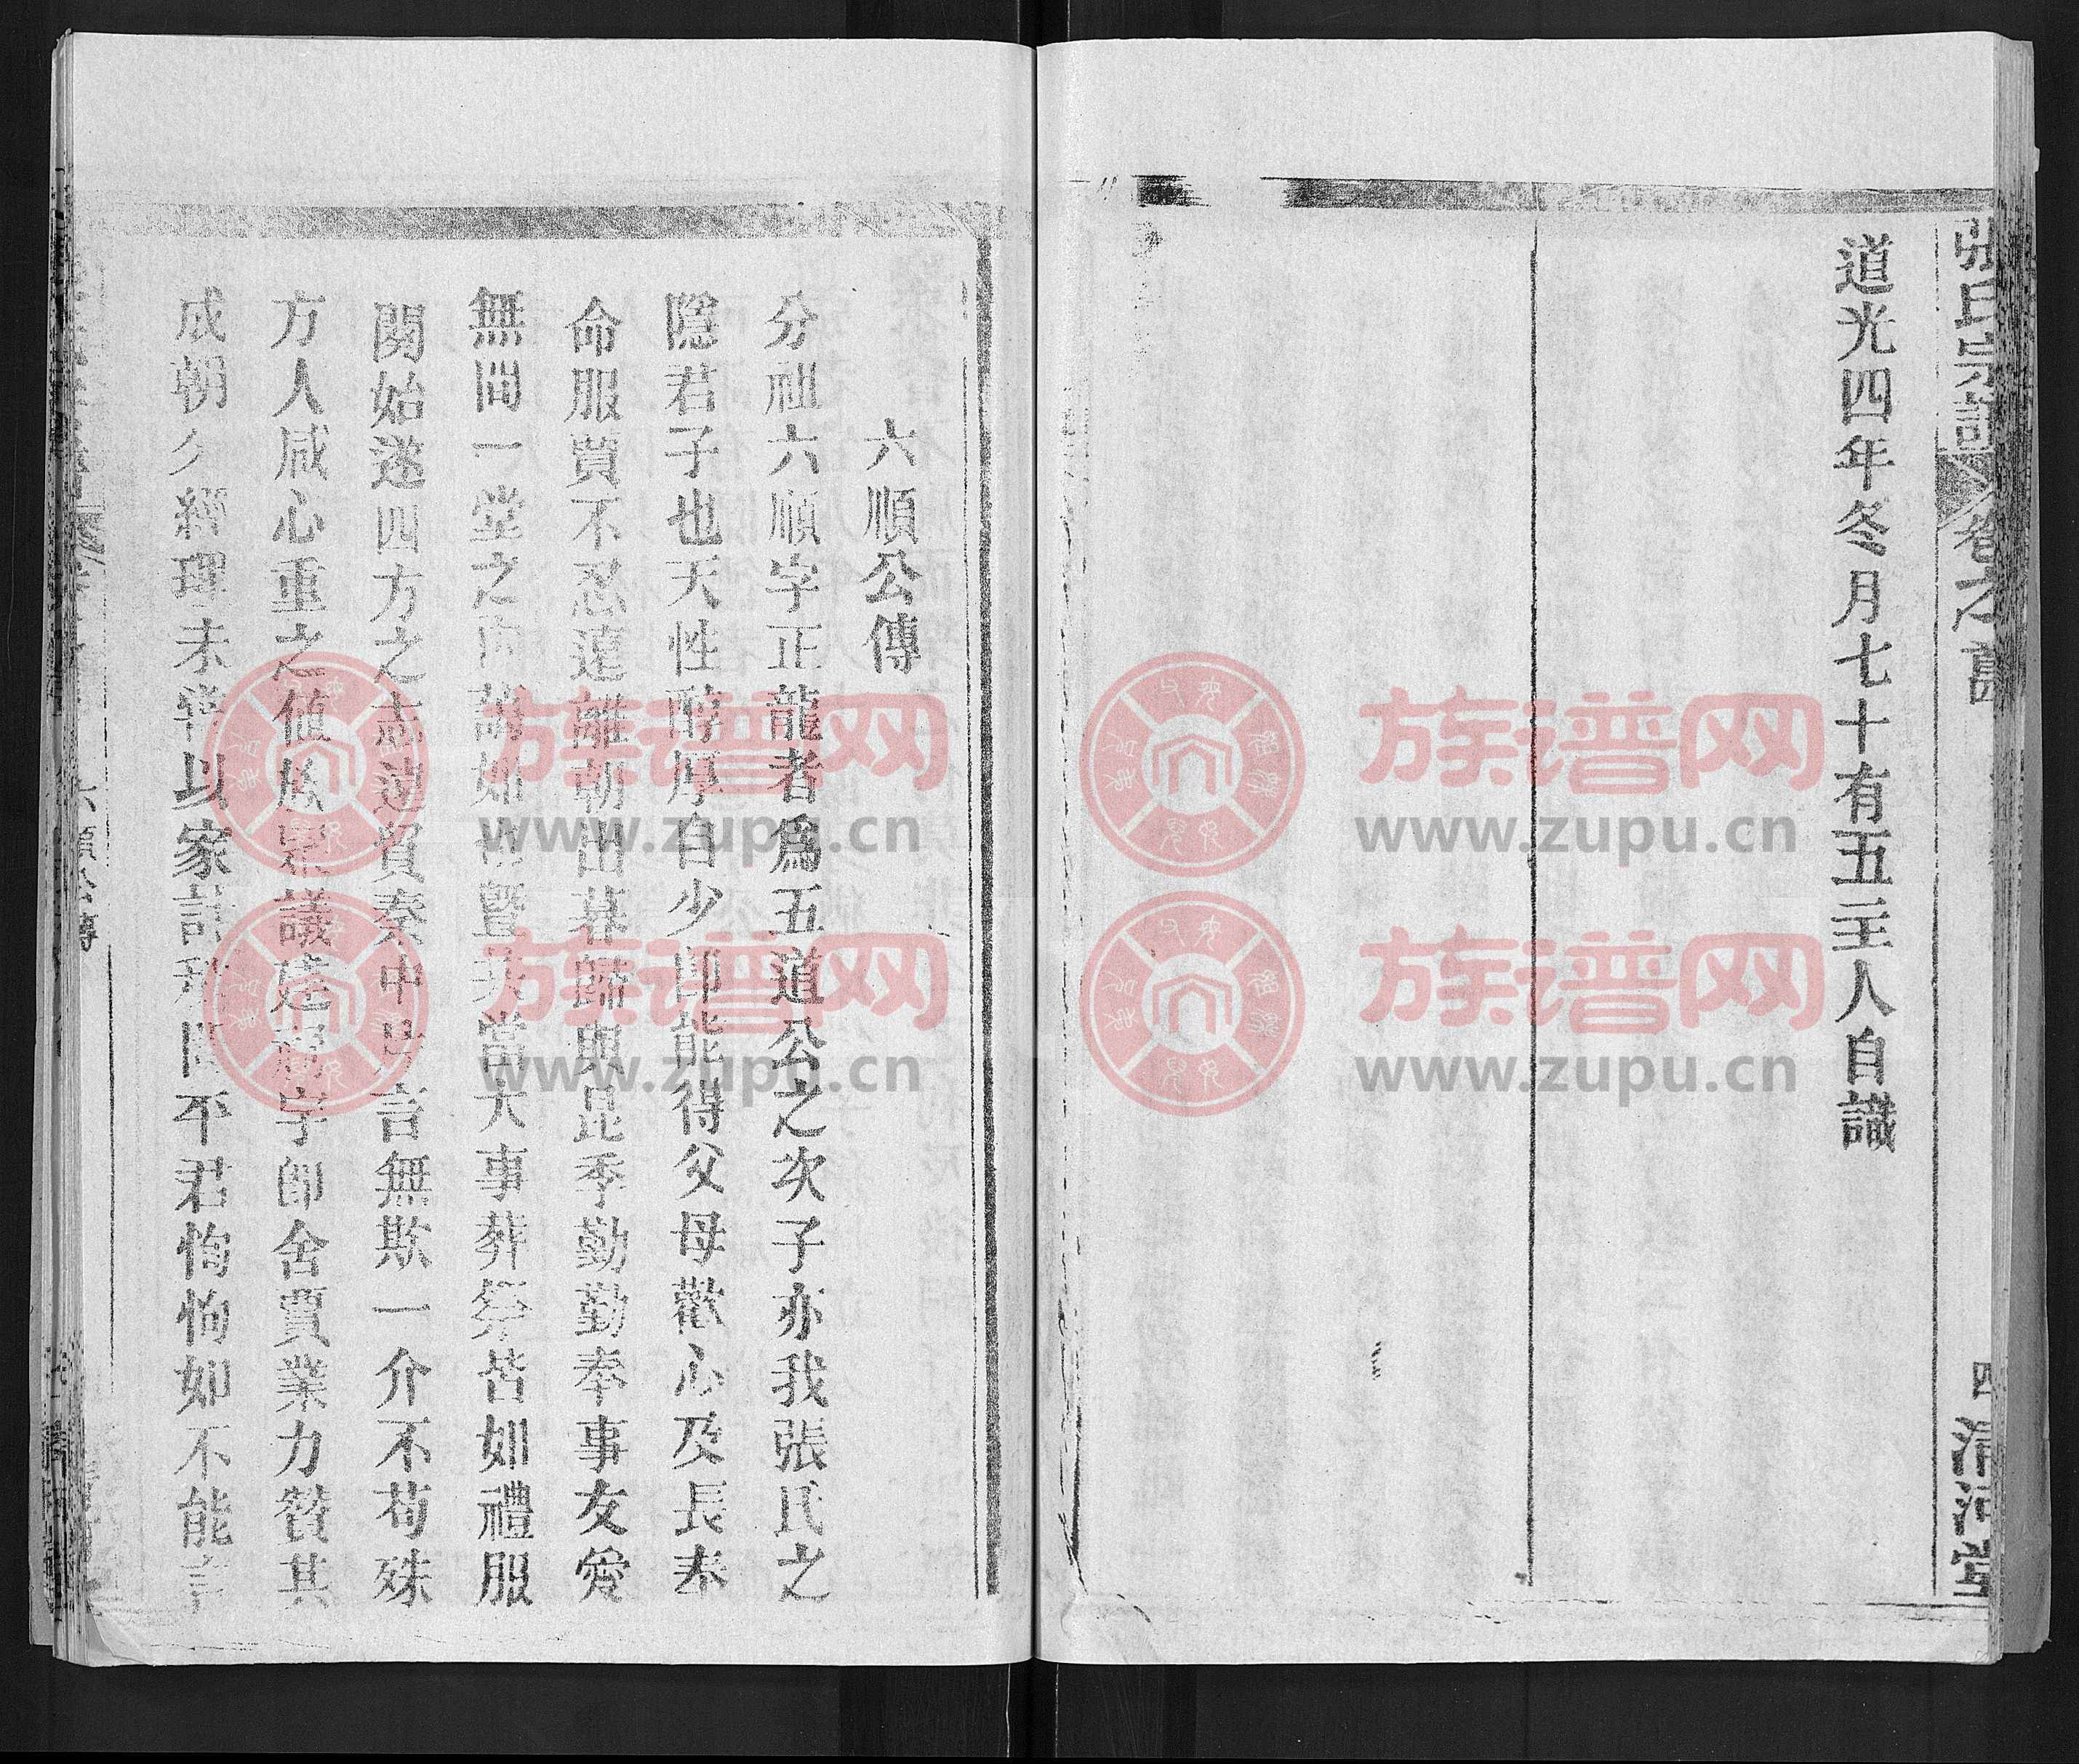 道光四年冬月七十有五主人自識
六順公傳
分祖六順字正龍者爲五道公之次子亦我張氏之
隱君子也天性醇厚自少卽能得父母歡心及長奉
命服賈不忍遠離朝出暮歸與昆季勤勤奉事友愛
無間一堂之內藹如也暨其當大事葬祭皆如禮服
闋始遂四方之志遠賈秦中出言無欺一介不苟殊
方人咸心重之値族衆議建祠宇卽舍賈業力贊其
成朝夕經理未嘗以家計 平君恂恂如不能言
六順公傳
族谱网
www.zupu.cn
族谱网
www.zupu.cn
族谱网
www.zupu.cn
族谱网
www.zupu.cn